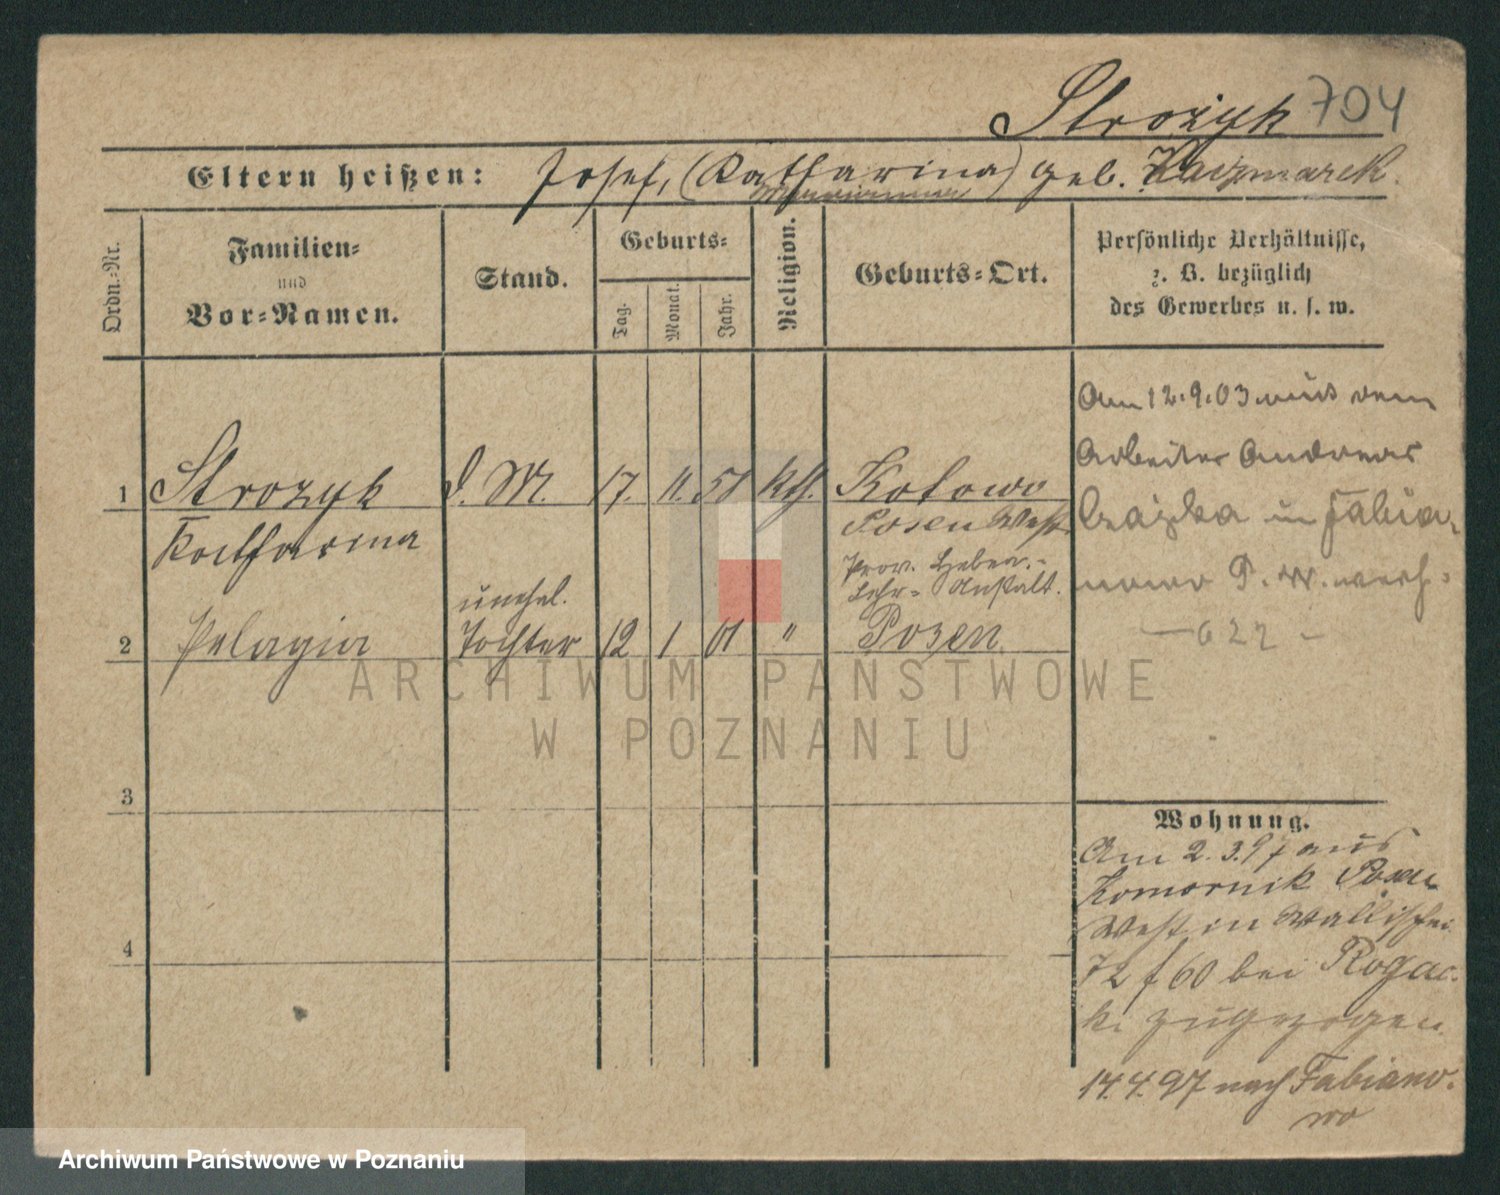 Strożyk 704
Eltern heißen: Josef, (Katharina) geb. Kaczmarek.
Ordn.=Nr.
Familien=
und
Vor=Namen.
Stand.
Geburts=
Tag.
Monat.
Jahr.
Religion.
Geburts=Ort.
Persönliche Verhältnisse,
z. B. bezüglich
des Gewerbes u. s. w.
1 Strozyk d. M. 17. 11. kth. Kotowo
Katharina Posen West
Prov. Hebam.-
Lehr= Anstalt.
unehel.
2 Pelagia Tochter 12 1 01 " Posen
3
4
Am 12.9.03 mit dem
Arbeiter Andreas
in Fabia-
nowo P. W. verh=
Wohnung.
Am 2.3.97 aus
Komornik Posen
West in Wallischei
72 f 60 bei Rogac-
ki zugezogen.
14.4.97 nach Fabiano-
wo
ARCHIWUM PAŃSTWOWE
W POZNANIU
Archiwum Państwowe w Poznaniu